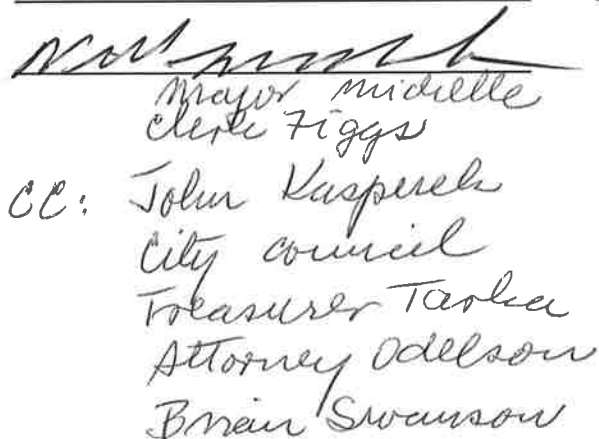 Mayor Michelle
Clerk Figgs
CC: John Kasperek
City council
Treasurer Tarka
Attorney Odelson
Brian Swanson